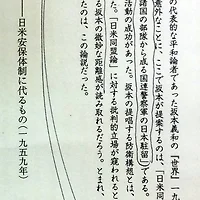 の代表的な平和論者であった坂本義和の『世界』一九
意外なことに、ここで坂本が提案するのは、「日米同
諸国の部隊から成る国連警察軍の日本駐留」である。
活動の成功があった。坂本の提唱する防衛構想とは、
た。「日米同盟論」に対する批判的立場が窺われると
る坂本の微妙な距離感が読み取れるだろう。ともあれ、
たのは、この論説だった。
――日米安保体制に代るもの（一九五九年）